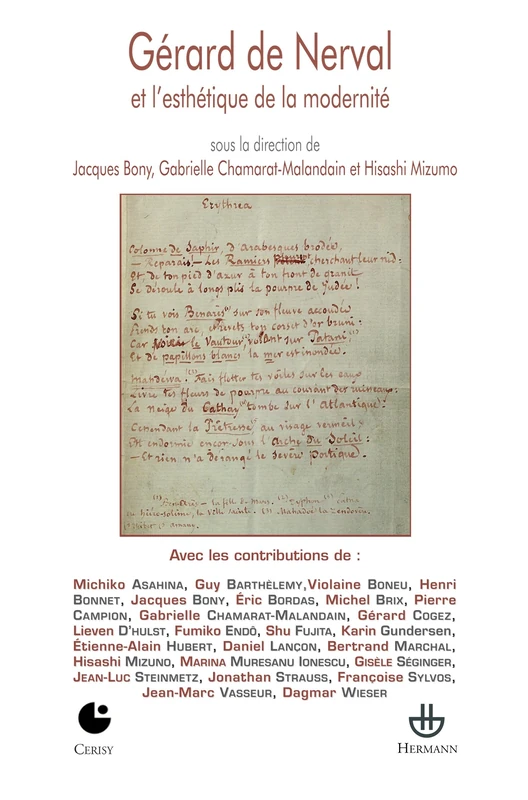 Gérard de Nerval
et l'esthétique de la modernité
sous la direction de
Jacques Bony, Gabrielle Chamarat-Malandain et Hisashi Mizumo
Erythrea
Colonne de Saphir, d'arabesques brodée,
– Reparais! – Les Ramiers cherchant leur nid:
Et de ton pied d'azur à ton front de granit
Se déroule à longs plis la pourpre de Judée!
Si tu vois Bénarès sur son fleuve accoudée
Prends ton arc, et revets ton corset d'or bruni:
Car le Vautour, volant sur Patani,
Et de papillons blancs la mer est inondée.
Mahdéwa! Fais flotter tes voiles sur les eaux
Livre tes fleurs de pourpre au courant des ruisseaux:
La neige du Cathay tombe sur l'Atlantique:
Cependant la Prêtresse au visage vermeil
Est endormie encor sous l'Arche du Soleil:
– Et rien n'a dérangé le sévère portique.
Avec les contributions de :
Michiko Asahina, Guy Barthèlemy,Violaine Boneu, Henri
Bonnet, Jacques Bony, Éric Bordas, Michel Brix, Pierre
Campion, Gabrielle Chamarat-Malandain, Gérard Cogez,
Lieven D'hulst, Fumiko Endô, Shu Fujita, Karin Gundersen,
Étienne-Alain Hubert, Daniel Lançon, Bertrand Marchal,
Hisashi Mizuno, Marina Muresanu Ionescu, Gisèle Séginger,
Jean-Luc Steinmetz, Jonathan Strauss, Françoise Sylvos,
Jean-Marc Vasseur, Dagmar Wieser
Cerisy
Hermann